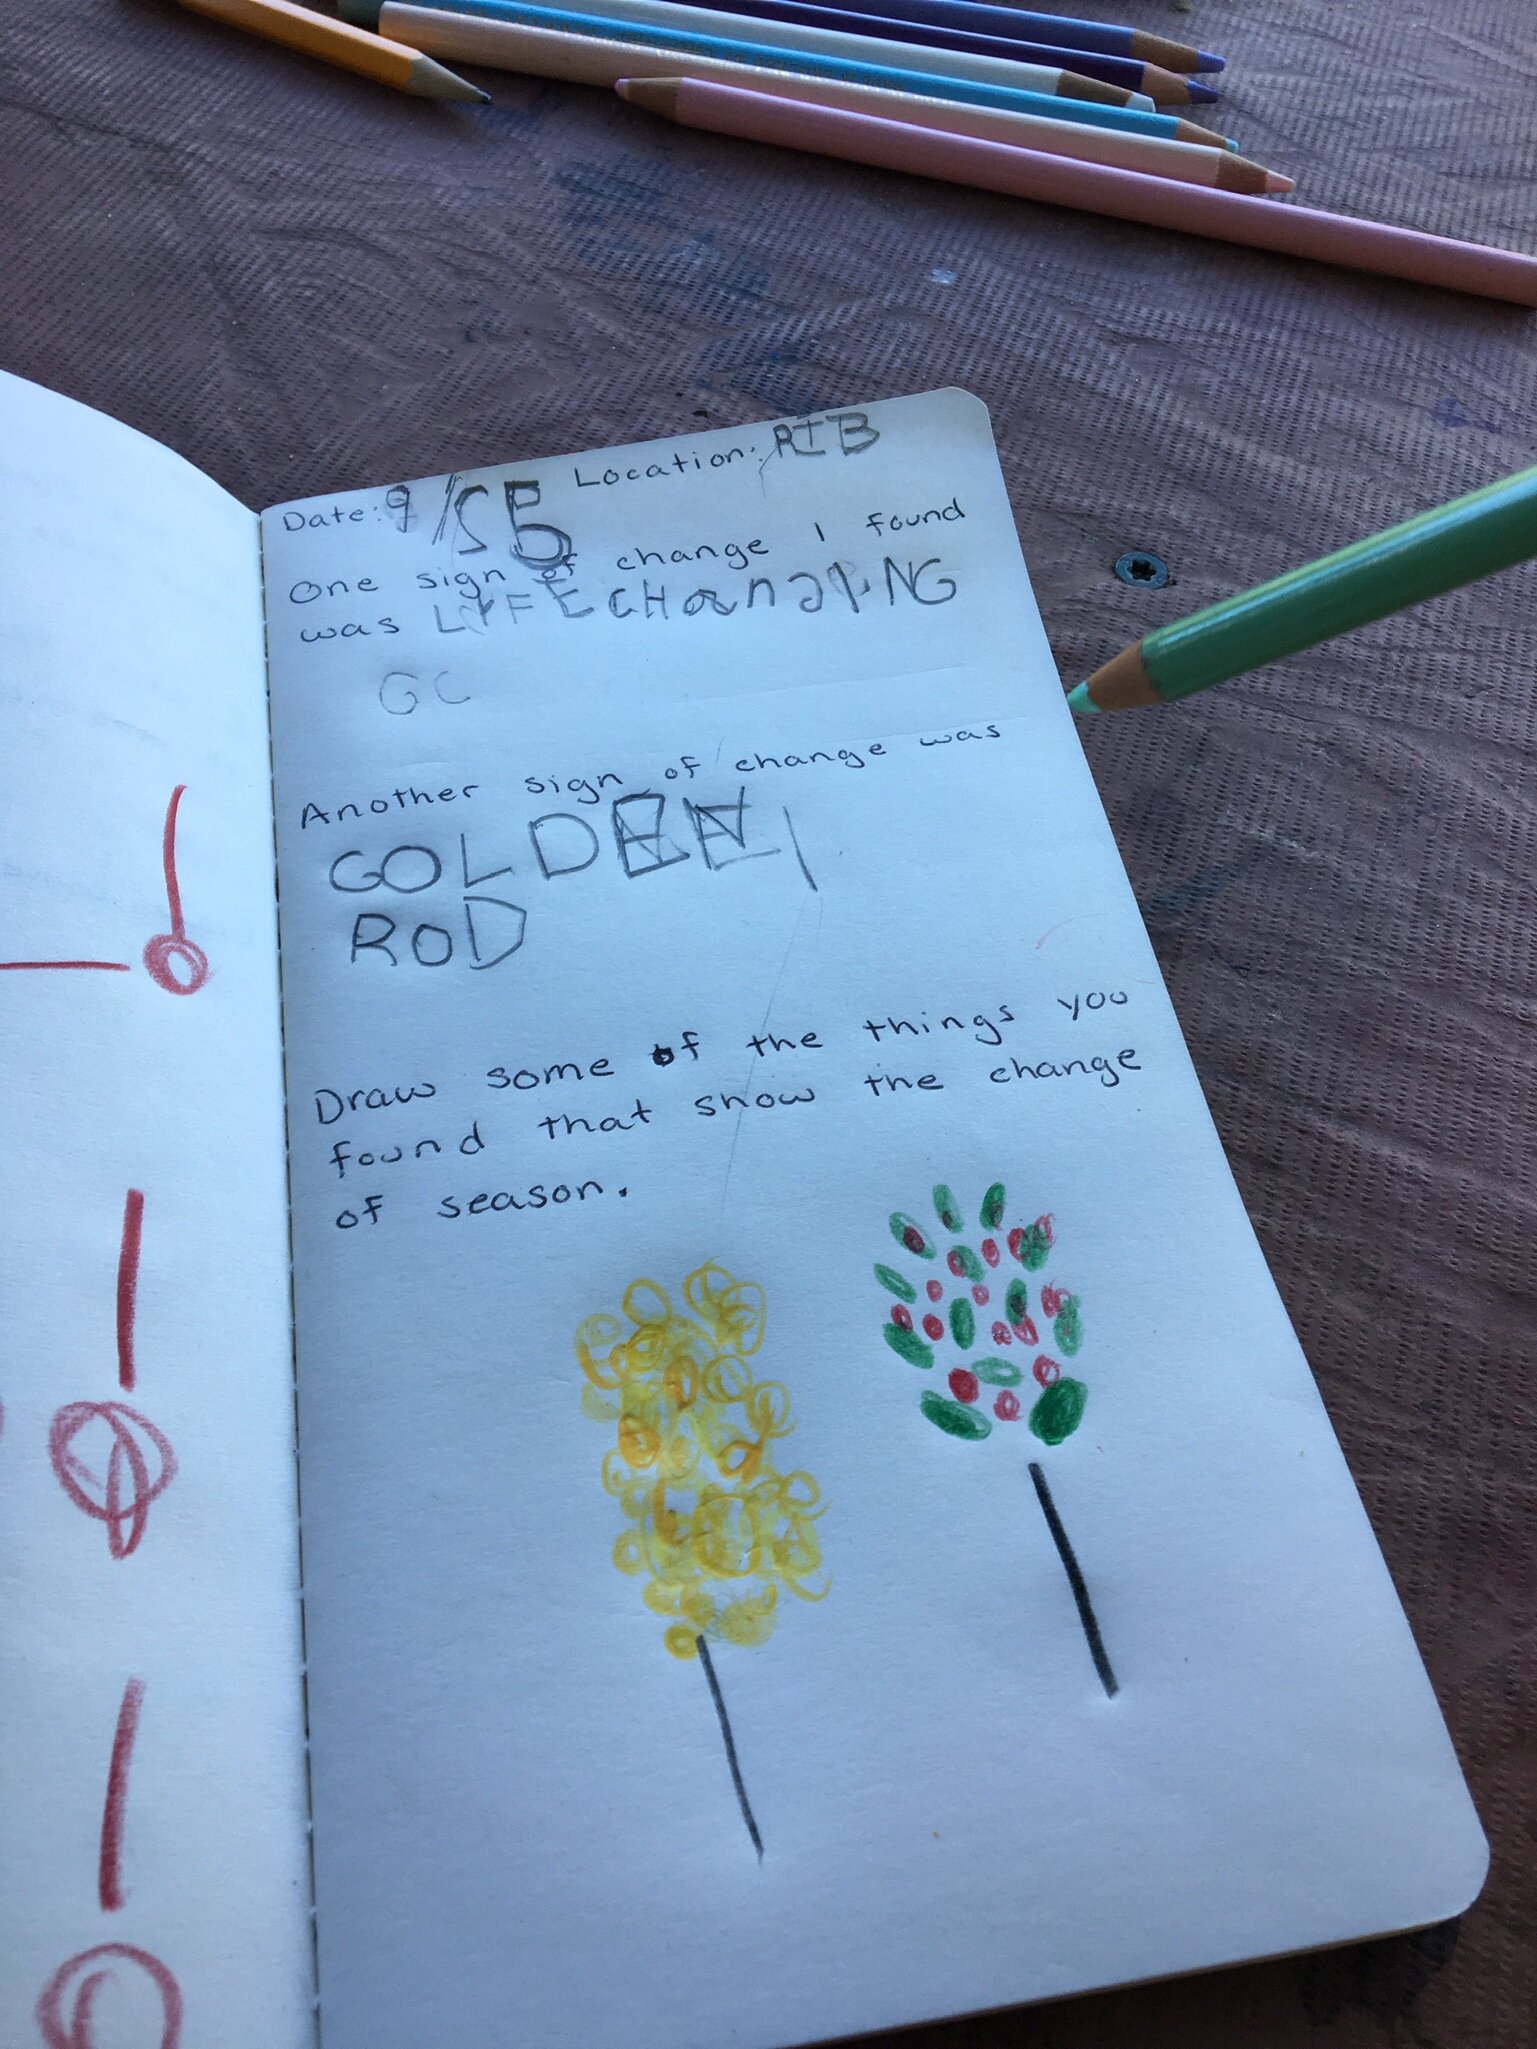 Date: 9/25 Location: RIB
One sign of change I found
was LYFE CHanging
GC
Another sign of change was
GOLDEN
ROD
Draw some of the things you
found that show the change
of season.